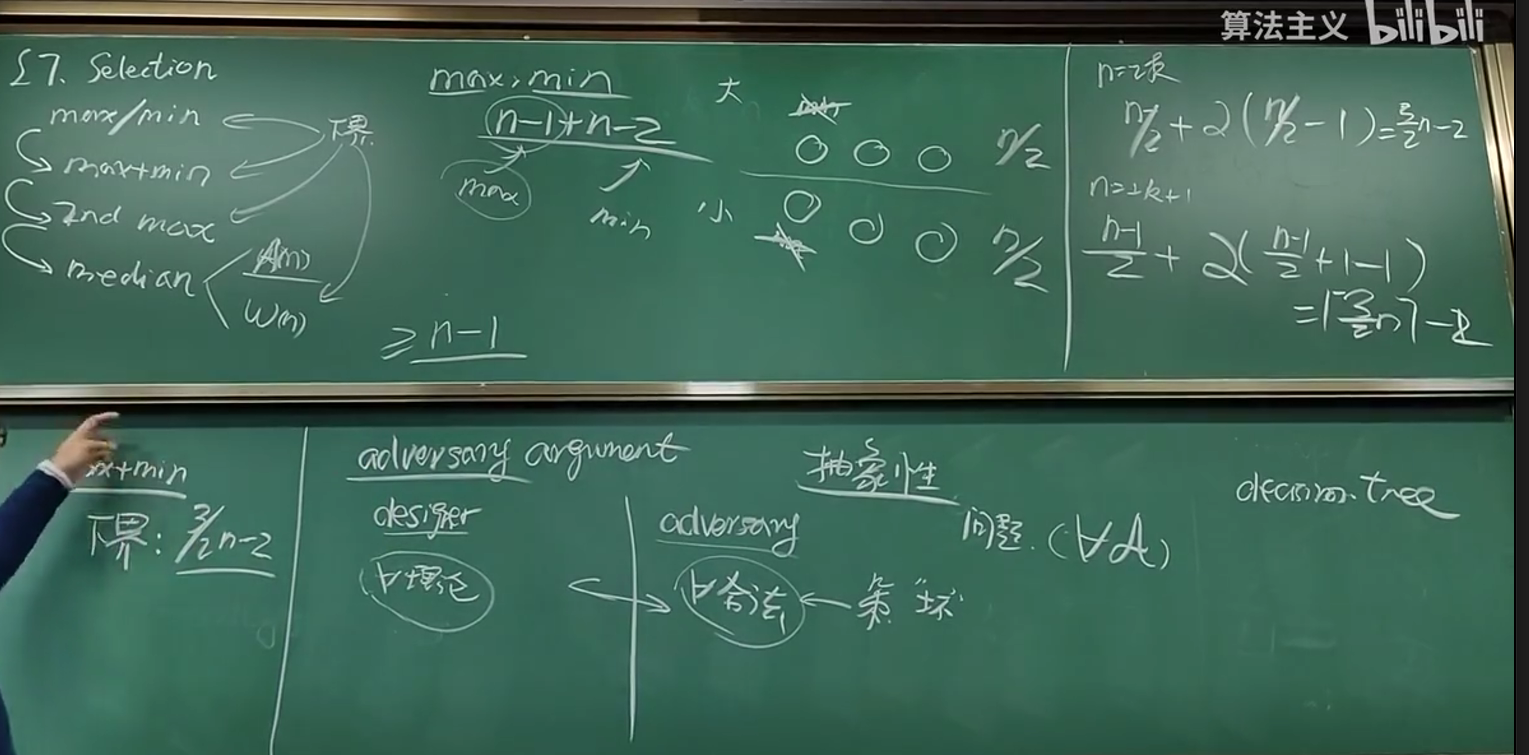 算法主义 bilibili
§7. Selection
max/min
max+min
2nd max
median
A(n)
W(n)
下界
≥ n-1
max, min
n-1+n-2
max
min
大
小
n/2
n/2
n=2k
n/2+2(n/2-1)=3/2n-2
n=2k+1
n-1/2+2(n-1/2+1-1)
=⌈3/2n⌉-2
x+min
下界: 3/2n-2
adversary argument
desiger
∀理论
adversary
∀合法
"坏"
抽象性
问题.(∀A)
decision tree